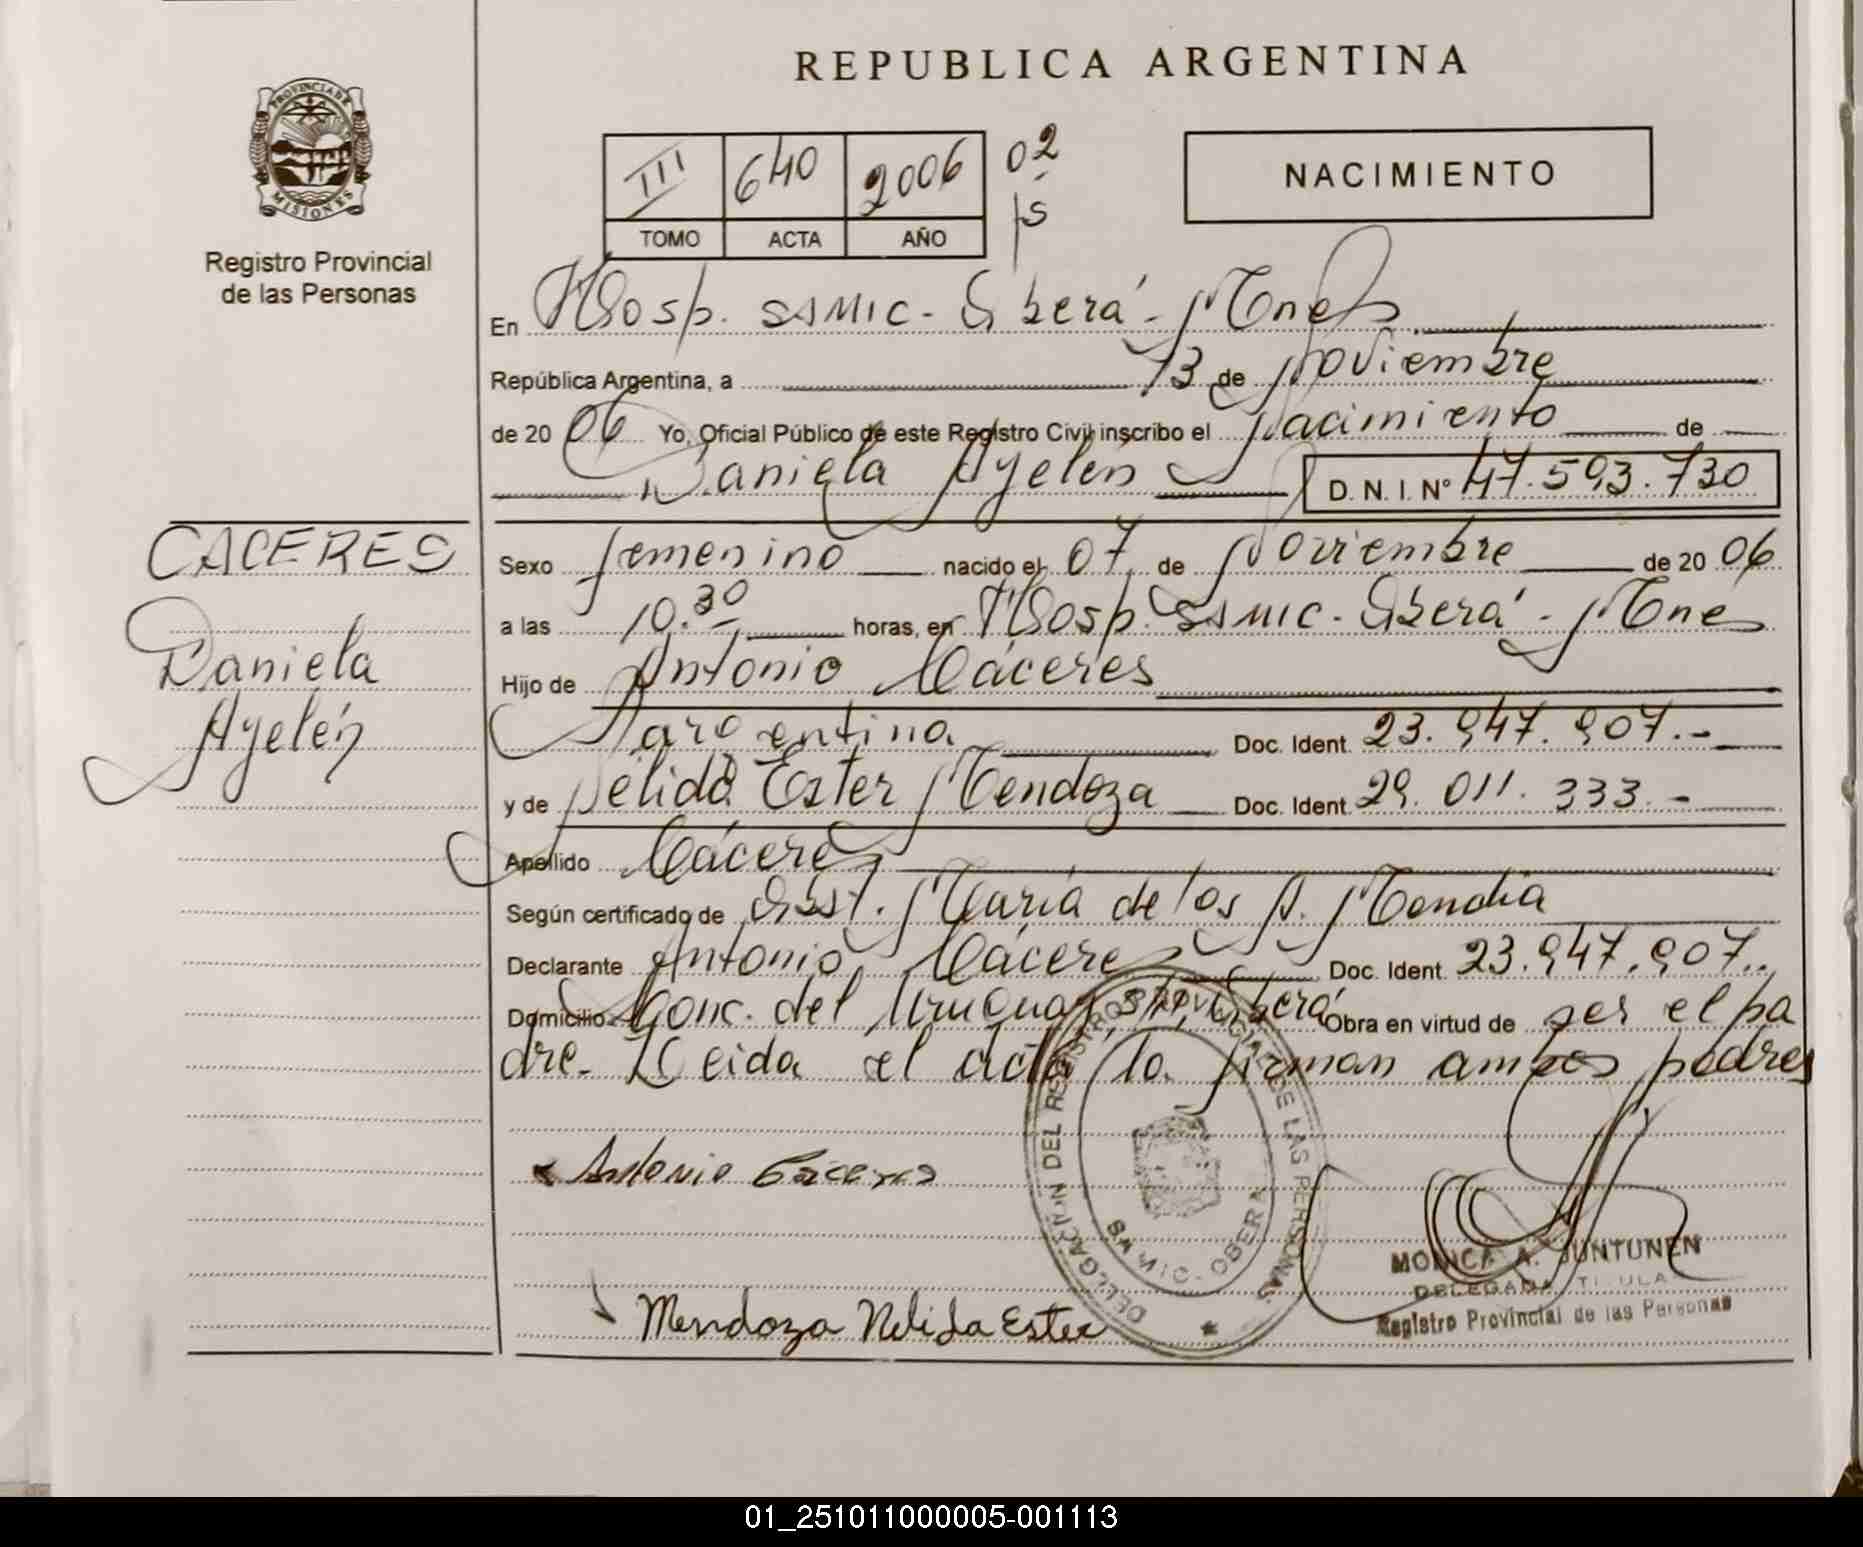 REPUBLICA ARGENTINA
PROVINCIA DE MISIONES
Registro Provincial
de las Personas
III 640 2006 02
TOMO ACTA AÑO
NACIMIENTO
En Hosp. SAMIC - Oberá - Mnes
República Argentina, a 13 de Noviembre
de 2006 Yo, Oficial Público de este Registro Civil inscribo el Nacimiento de
Daniela Ayelén D. N. I. Nº 47.593.730
CACERES
Daniela
Ayelén
Sexo femenino nacido el 07 de Noviembre de 2006
a las 10.30 horas, en Hosp. SAMIC - Oberá - Mnes
Hijo de Antonio Cáceres
Argentina Doc. Ident. 23.947.907.-
y de Nélida Ester Mendoza Doc. Ident. 29.011.333.-
Apellido Cáceres
Según certificado de Obst. María de los A.
Declarante Antonio Cáceres Doc. Ident. 23.947.907..
Domicilio Conc. del Uruguay s/n, Oberá Obra en virtud de ser el pa
dre. Leida el acta, la firman ambos padres
Antonio Caceres
Mendoza Nelida Ester
DELEGACION DEL REGISTRO PROVINCIAL DE LAS PERSONAS
SAMIC - OBERA
MONICA A. JUNTUNEN
DELEGADA TITULAR
Registro Provincial de las Personas
01_251011000005-001113